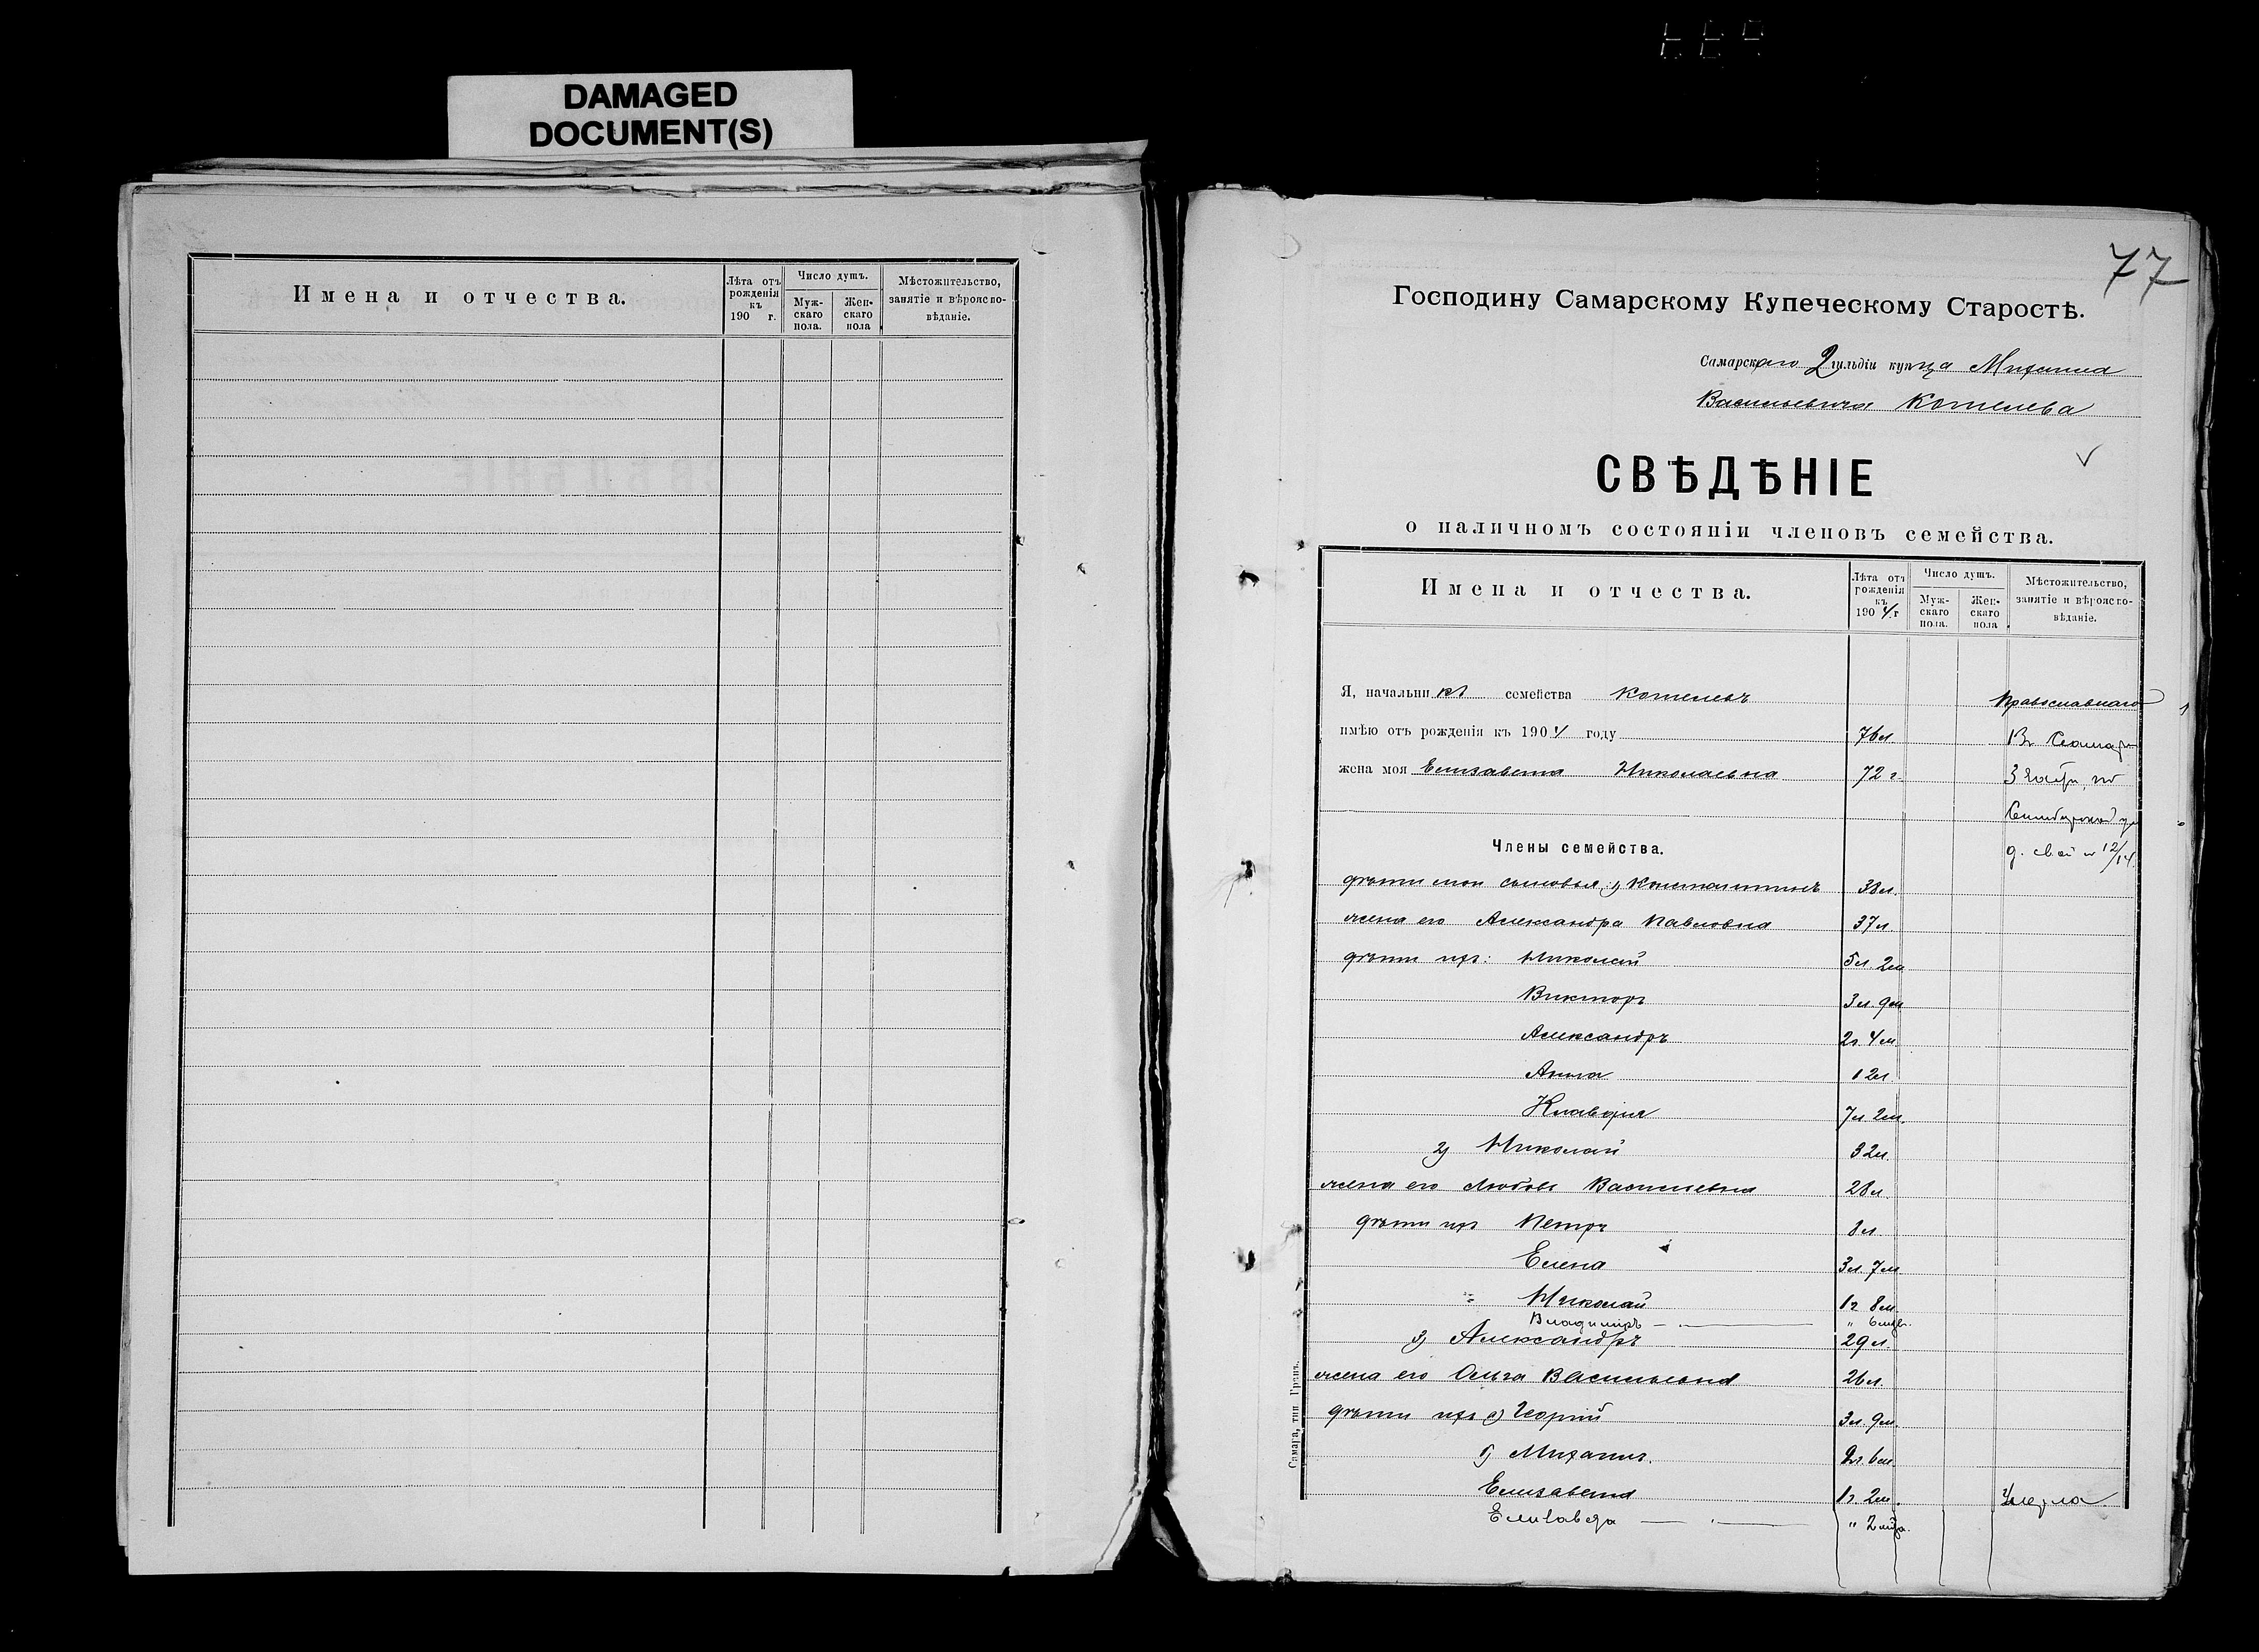 DAMAGED
DOCUMENT(S)
Имена и отчества.
Лѣта отъ рожденія къ 190 г.
Число душъ.
Мужскаго пола.
Женскаго пола
Мѣстожительство, занятіе и вѣроисповѣданіе.
77
Господину Самарскому Купеческому Старостѣ.
Самарскаго 2 гильдіи купца Михаила
Васильевича Кошелева
СВѢДѢНІЕ
о наличномъ состояніи членовъ семейства.
Имена и отчества.
Лѣта отъ рожденія къ 1904 г
Число душъ.
Мужскаго пола.
Женскаго пола
Мѣстожительство, занятіе и вѣроисповѣданіе.
Я, начальникъ семейства Кошелевъ Православнаго
имѣю отъ рожденія къ 1904 году 76 л. Въ Самарѣ
жена моя Елизавета Николаевна 72 г. 3 части, по
Симбирской ул
Члены семейства. д. свой № 12/14.
дѣти мои сыновья: 1) Константинъ 38 л.
жена его Александра Павловна 37 л.
дѣти ихъ: Николай 5 л. 2 м
Викторъ 3 л. 9 м
Александръ 2 г. 4 м.
Анна 12 л.
Клавдія 7 л. 2 м.
2) Николай 32 л.
жена его Любовь Васильевна 28 л.
дѣти ихъ Петръ 8 л.
Елена 3 л. 7 м
Николай 1 г. 8 м.
Владиміръ — " 6 мцв.
3) Александръ 29 л.
жена его Ольга Васильевна 26 л.
дѣти ихъ а) Георгій 3 л. 9 м.
б) Михаилъ. 2 г. 6 м.
Елизавета 1 г. 2 м. Умерла.
Елизавета — " 2 мца.
Самара, тип. Гранъ.